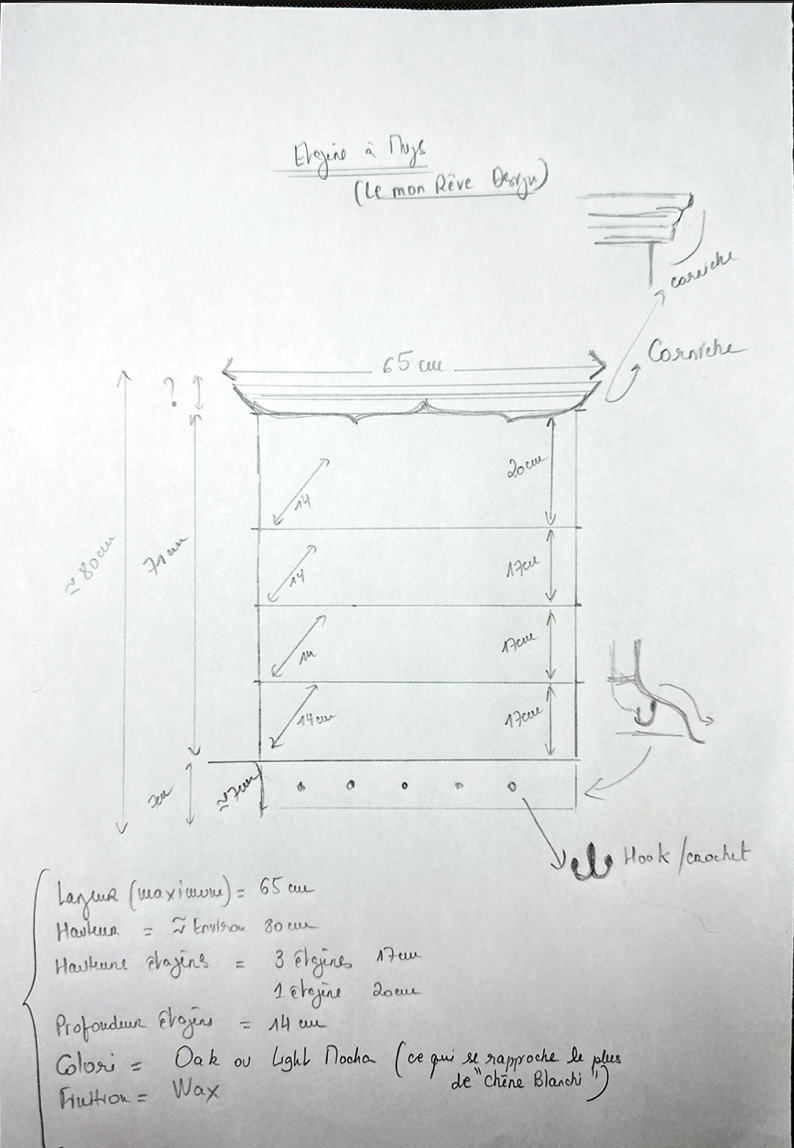 Etagère à Mugs
(Le mon Rêve Design)
corniche
Corniche
65 cm
?
20cm
14
≈ 80cm
71cm
17cm
14
17cm
14
17cm
14cm
7cm
≈7cm
Hook / crochet
Largeur (maximum) = 65 cm
Hauteur = ≈ Environ 80cm
Hauteurs étagères = 3 étagères 17cm
1 étagère 20cm
Profondeur étagère = 14 cm
Colori = Oak ou Light Mocha (ce qui se rapproche le plus
de "Chêne Blanchi")
Finition = Wax